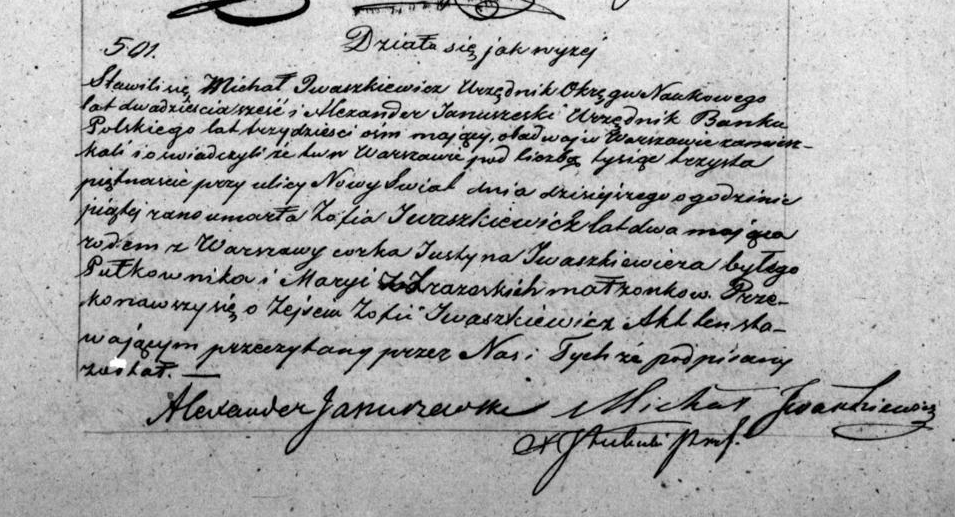 501. Działo się jak wyżej
Stawili się Michał Iwaszkiewicz Urzędnik Okręgu Naukowego
lat dwadzieścia sześć i Alexander Januszeski Urzędnik Banku
Polskiego lat trzydzieści ośm mający, obadwaj w Warszawie zamiesz-
kali i oświadczyli że tu w Warszawie pod liczbą tysiąc trzysta
piętnaście przy ulicy Nowy Świat dnia dzisiejszego o godzinie
piątej rano umarła Zofia Iwaszkiewicz lat dwa mająca
rodem z Warszawy corka Justyna Iwaszkiewicza byłego
Pułkownika i Maryi małżonkow. Prze-
konawszy się o Zejściu Zofii Iwaszkiewicz Akt ten sta-
wającym przeczytany przez Nas i Tychże podpisany
został. —
Alexander Januszewski Michał Iwaszkiewicz